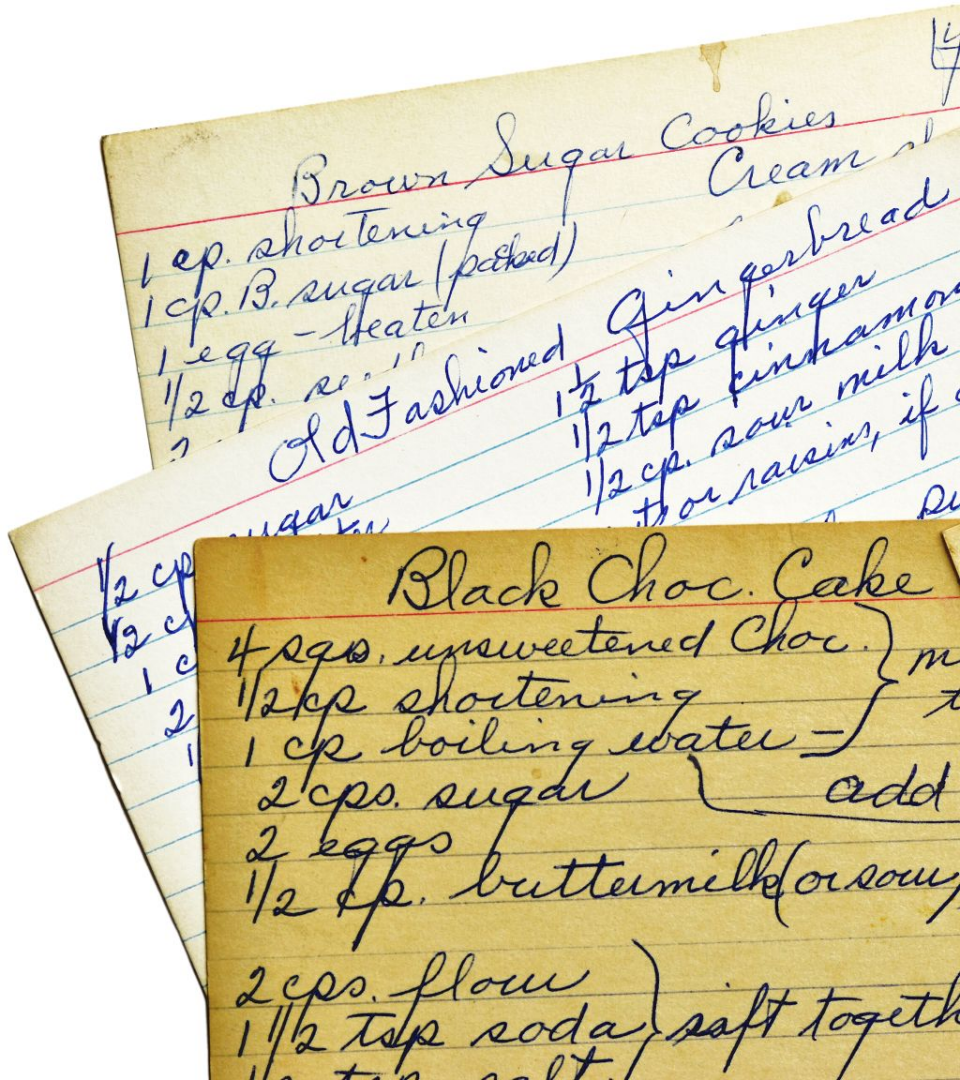 Brown Sugar Cookies
Cream
1 cp. shortening
1 cp. B. sugar (packed)
1 egg - beaten
1/2 cp.
2
Old Fashioned Gingerbread
1/2 cp sugar
1/2
1
2
1 1/2 tsp ginger
1/2 tsp cinnamon
1/2 cp. sour milk
or raisins, if
Black Choc. Cake
4 sqs. unsweetened Choc.
1/2 cp shortening
1 cp boiling water -
add
2 cps. sugar
2 eggs
1/2 cp. buttermilk (or sour
2 cps. flour
1 1/2 tsp soda sift togeth
tsp salt